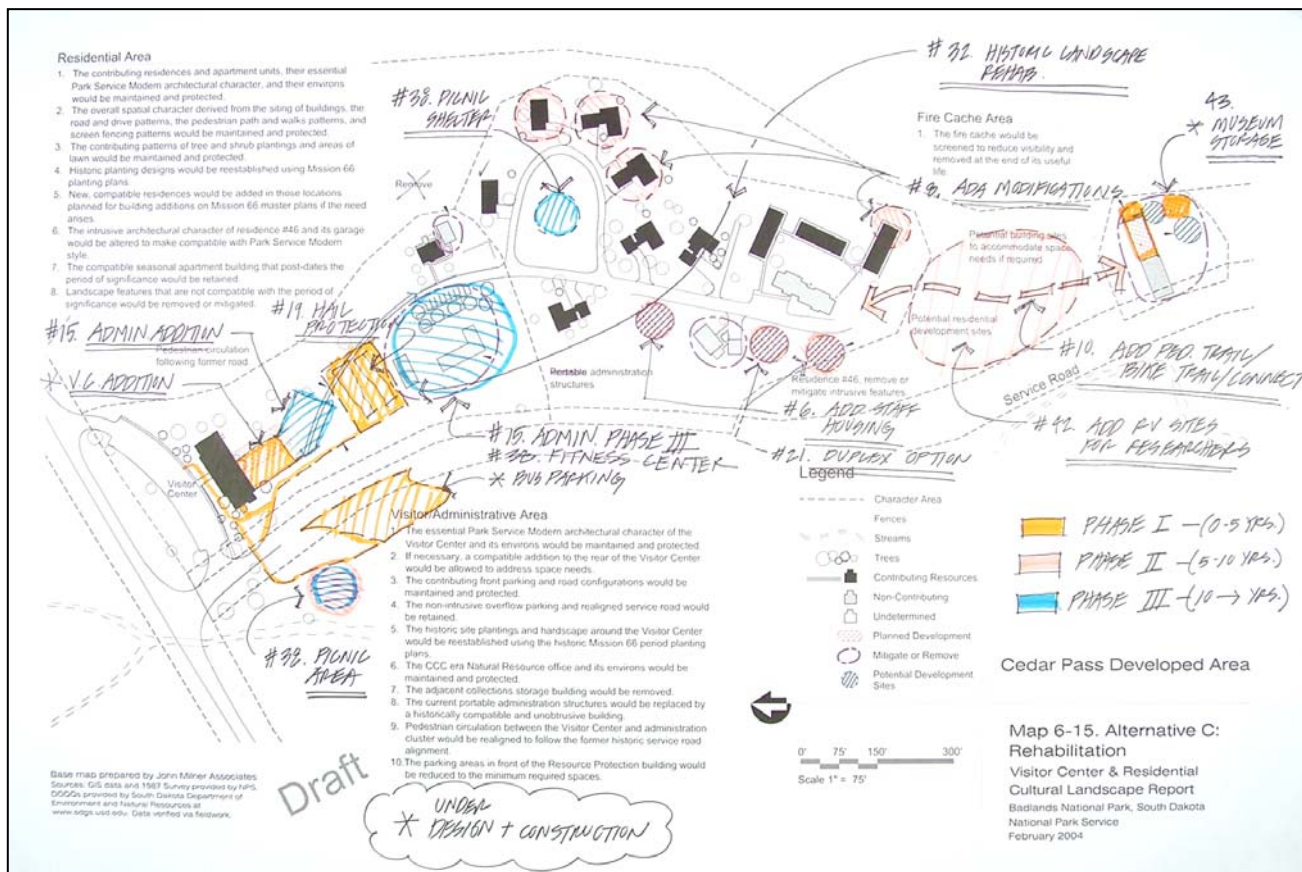 Residential Area
1. The contributing residences and apartment units, their essential
Park Service Modern architectural character, and their environs
would be maintained and protected.
2. The overall spatial character derived from the siting of buildings, the
road and drive patterns, the pedestrian path and walks patterns, and
screen fencing patterns would be maintained and protected.
3. The contributing patterns of tree and shrub plantings and areas of
lawn would be maintained and protected.
4. Historic planting designs would be reestablished using Mission 66
planting plans.
5. New, compatible residences would be added in those locations
planned for building additions on Mission 66 master plans if the need
arises.
6. The intrusive architectural character of residence #46 and its garage
would be altered to make compatible with Park Service Modern
style.
7. The compatible seasonal apartment building that post-dates the
period of significance would be retained.
8. Landscape features that are not compatible with the period of
significance would be removed or mitigated.
#38. PICNIC
SHELTER
Remove
#32. HISTORIC LANDSCAPE
REHAB.
Fire Cache Area
1. The fire cache would be
screened to reduce visibility and
removed at the end of its useful
life.
43.
* MUSEUM
STORAGE
#8. ADA MODIFICATIONS
Potential building sites
to accommodate space
needs if required
Potential residential
development sites
#19. HAIL
PROTECTION
#15. ADMIN ADDITION
Pedestrian circulation
following former road
* V.C. ADDITION
Visitor
Center
Portable administration
structures
Residence #46, remove or
mitigate intrusive features
#10. ADD PED. TRAIL/
BIKE TRAIL/CONNECT
Service Road
#6. ADD STAFF
HOUSING
#42. ADD RV SITES
FOR RESEARCHERS
#15. ADMIN. PHASE III
#38. FITNESS CENTER
* BUS PARKING
#21. DUPLEX OPTION
#38. PICNIC
AREA
Visitor/Administrative Area
1. The essential Park Service Modern architectural character of the
Visitor Center and its environs would be maintained and protected.
2. If necessary, a compatible addition to the rear of the Visitor Center
would be allowed to address space needs.
3. The contributing front parking and road configurations would be
maintained and protected.
4. The non-intrusive overflow parking and realigned service road would
be retained.
5. The historic site plantings and hardscape around the Visitor Center
would be reestablished using the historic Mission 66 period planting
plans.
6. The CCC era Natural Resource office and its environs would be
maintained and protected.
7. The adjacent collections storage building would be removed.
8. The current portable administration structures would be replaced by
a historically compatible and unobtrusive building.
9. Pedestrian circulation between the Visitor Center and administration
cluster would be realigned to follow the former historic service road
alignment.
10. The parking areas in front of the Resource Protection building would
be reduced to the minimum required spaces.
Legend
Character Area
Fences
Streams
Trees
Contributing Resources
Non-Contributing
Undetermined
Planned Development
Mitigate or Remove
Potential Development
Sites
PHASE I - (0-5 YRS.)
PHASE II - (5-10 YRS.)
PHASE III - (10 → YRS.)
Cedar Pass Developed Area
0' 75' 150' 300'
Scale 1" = 75'
Map 6-15. Alternative C:
Rehabilitation
Visitor Center & Residential
Cultural Landscape Report
Badlands National Park, South Dakota
National Park Service
February 2004
Base map prepared by John Milner Associates
Sources: GIS data and 1987 Survey provided by NPS.
DOQQs provided by South Dakota Department of
Environment and Natural Resources at
www.sdgs.usd.edu. Data verified via fieldwork.
Draft
* UNDER
DESIGN + CONSTRUCTION